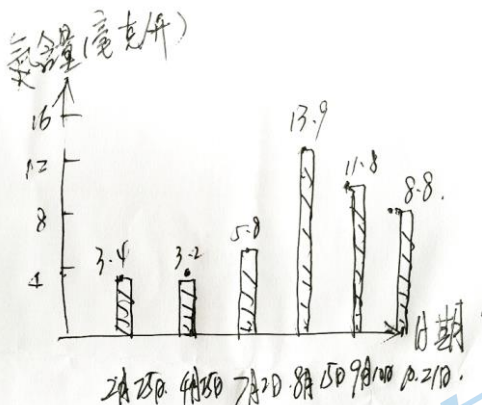 氨含量(毫克/升)
16
12
8
4
3.4
3.2
5.8
13.9
11.8
8.8.
日期
2月25日. 4月25日 7月2日. 8月15日 9月10日 10.21日.